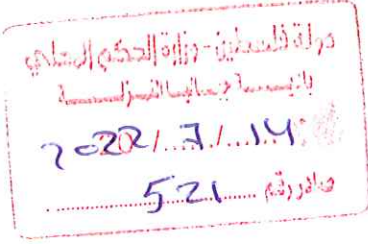 دولة فلسطين - وزارة الحكم المحلي
2022/7/14
صادر رقم 521